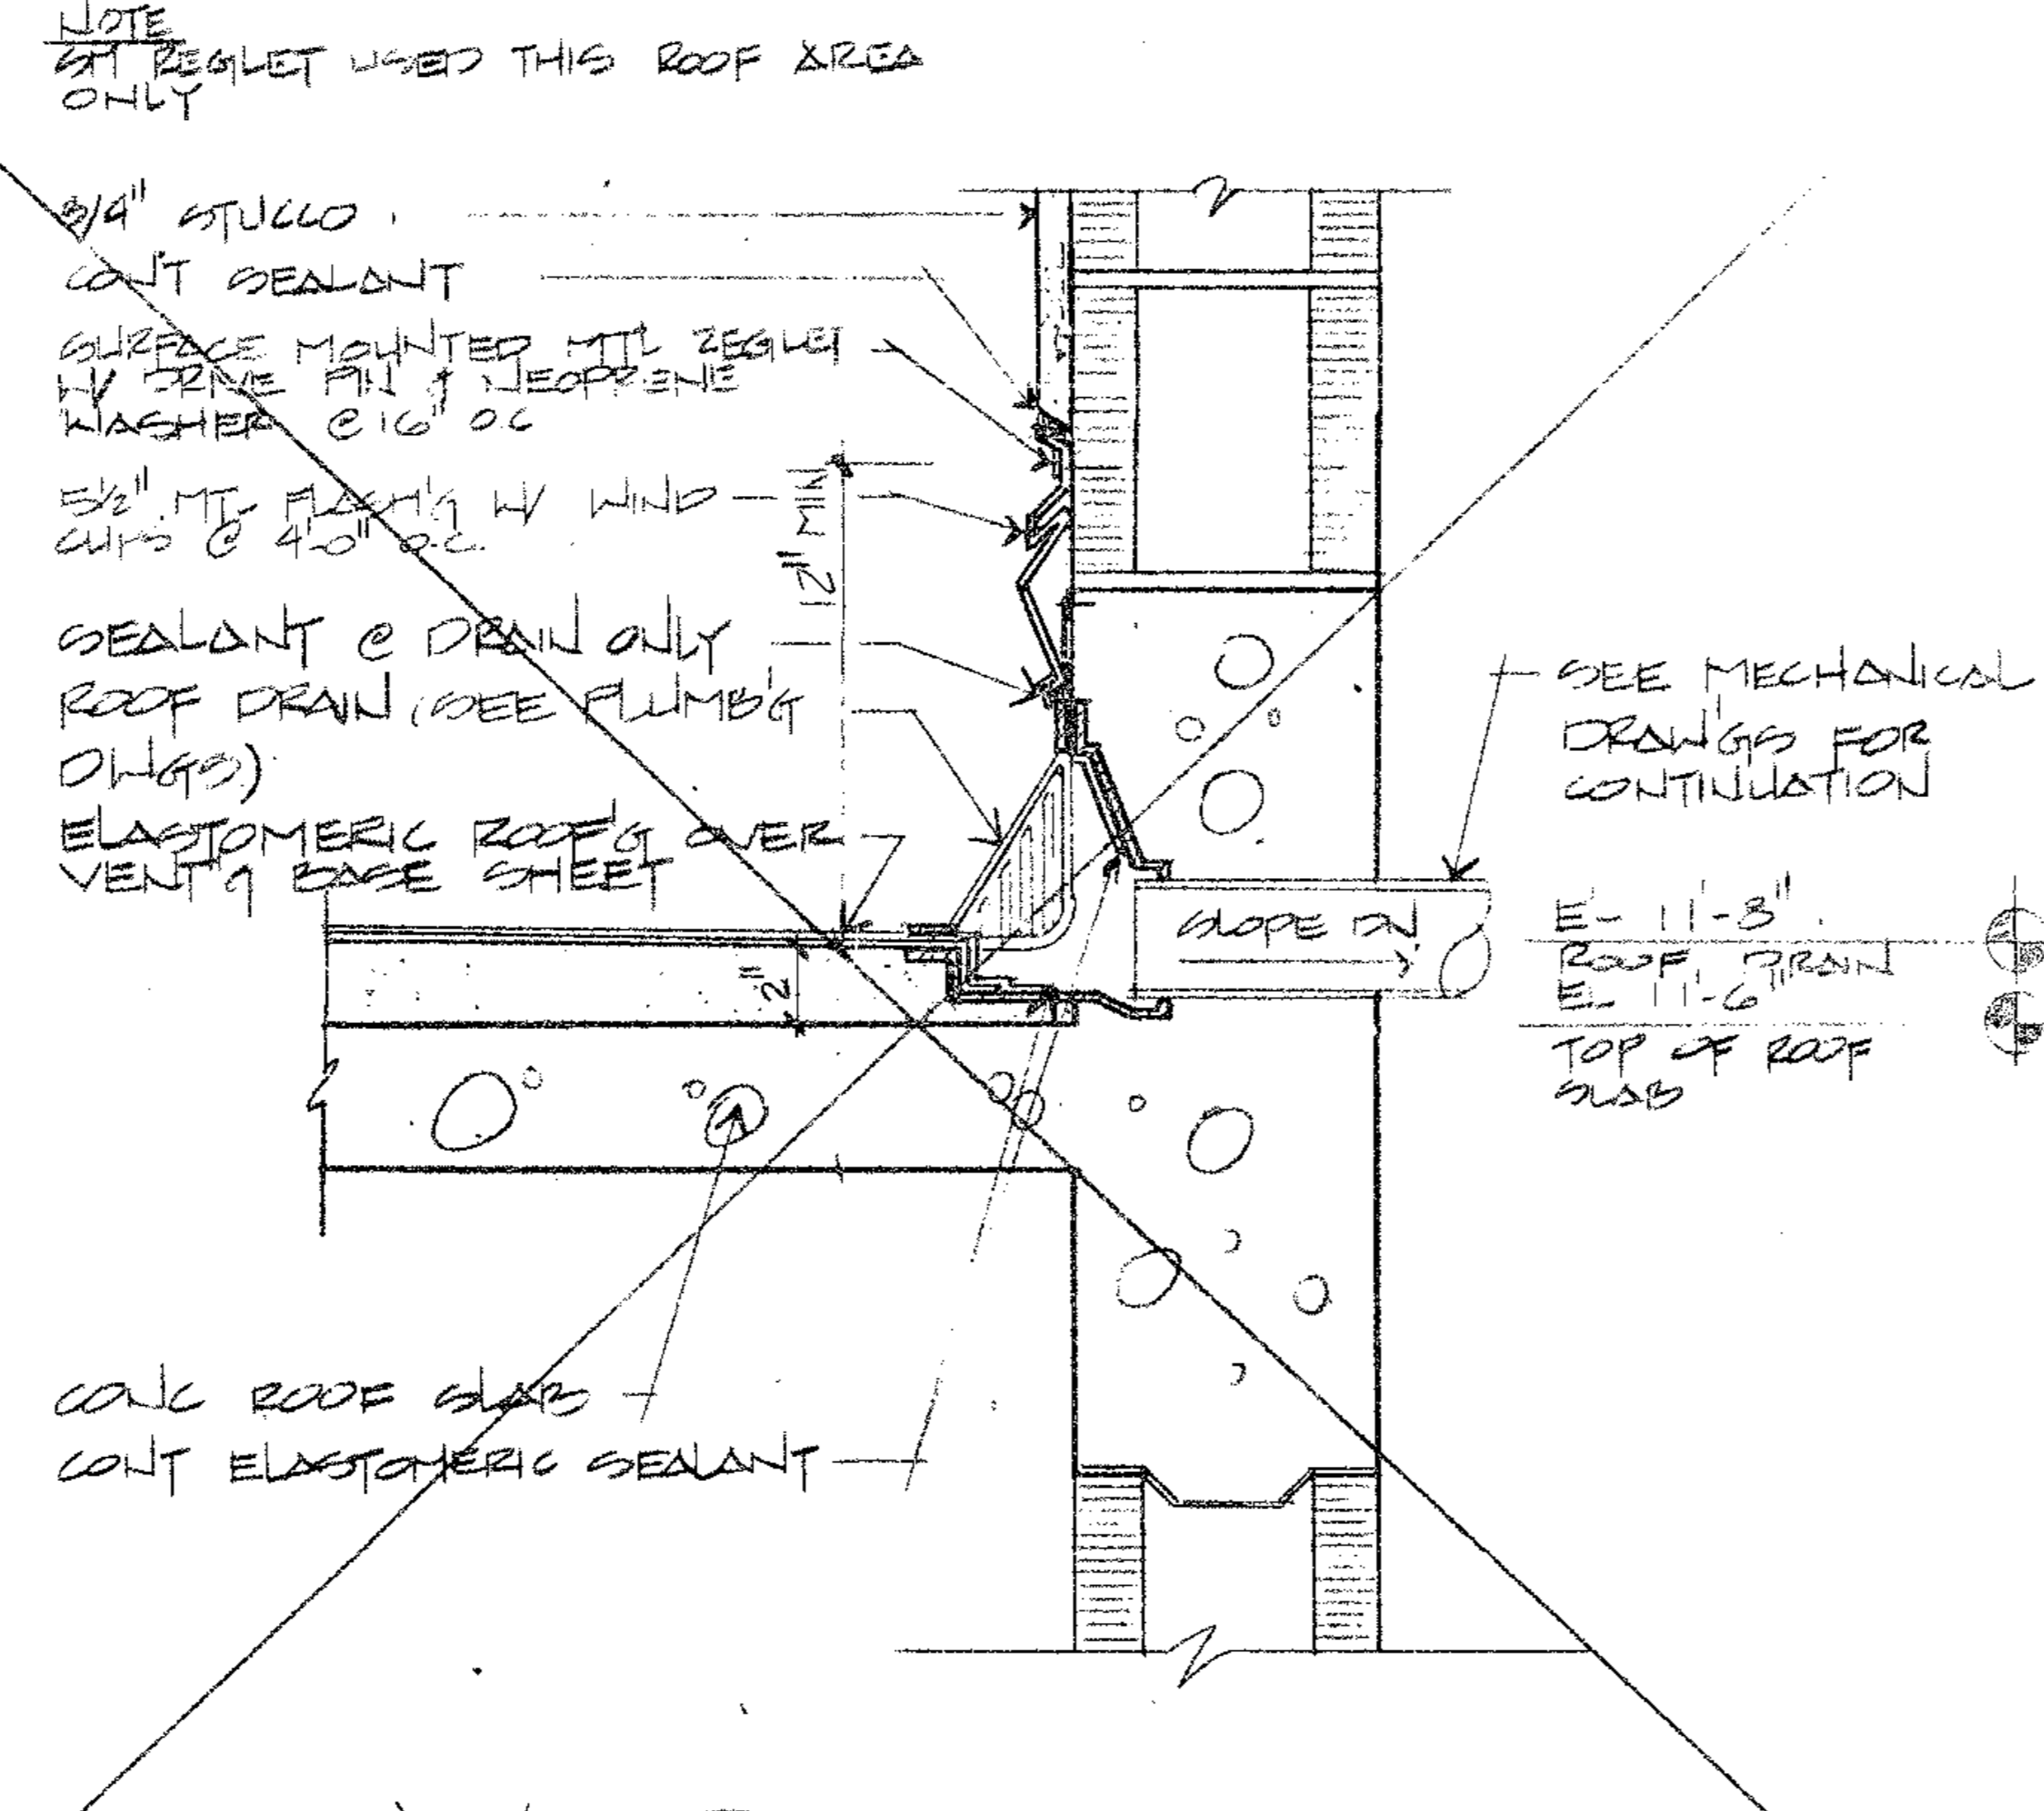 NOTE
SM REGLET USED THIS ROOF AREA
ONLY
3/4" STUCCO
CON'T SEALANT
SURFACE MOUNTED MTL REGLET
W/ DRIVE PIN & NEOPRENE
WASHER @ 16" O.C
5½" MTL FLASH'G W/ WIND
CLIPS @ 4'-0" O.C.
12" MIN
SEALANT @ DRAIN ONLY
ROOF DRAIN (SEE PLUMB'G
DWGS)
ELASTOMERIC ROOF'G OVER
VENT'G BASE SHEET
2"
SLOPE DN.
SEE MECHANICAL
DRAW'GS FOR
CONTINUATION
EL 11'-8"
ROOF DRAIN
EL 11'-6"
TOP OF ROOF
SLAB
CONC ROOF SLAB
CONT ELASTOMERIC SEALANT